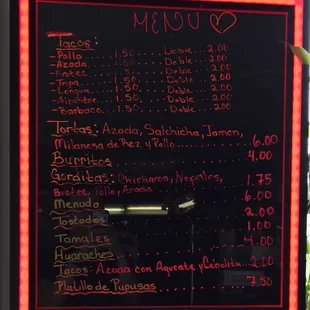 MENU
Tacos:
-Pollo 1.50 Doble 2.00
-Azada 1.50 Doble 2.00
1.50 Doble 2.00
-Tripa 1.50 Doble 2.00
-Lengua 1.50 Doble 2.00
1.50 Doble 2.00
-Barbacoa 1.50 Doble 2.00
Tortas: Azada, Salchicha, Jamon,
Milanesa de Rez y Pollo 6.00
Burritos 4.00
Gorditas: Chicharon, Nopales, 1.75
Azada 6.00
Menudo 2.00
Tostadas 1.00
Tamales 4.00
Huaraches
Tacos: Azada con Agucate y Cebollita 2.00
Platillo de Pupusas 7.50